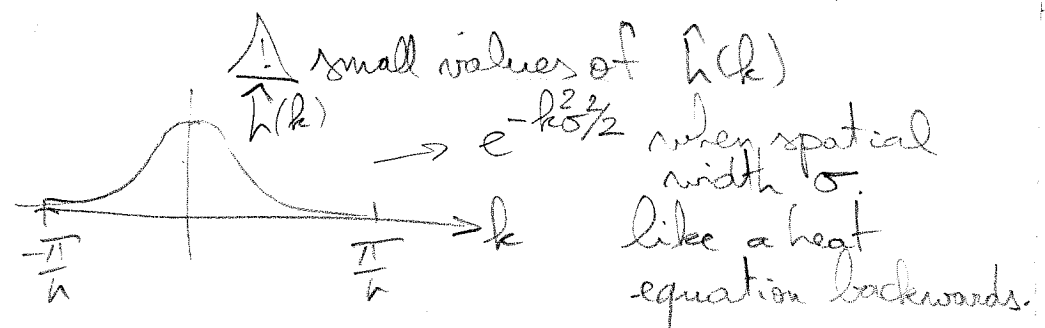 ! small values of ĥ(k)
ĥ(k)
→ e^{-k²σ²/2} when spatial
width σ.
k
like a heat
equation backwards.
-π/h
π/h